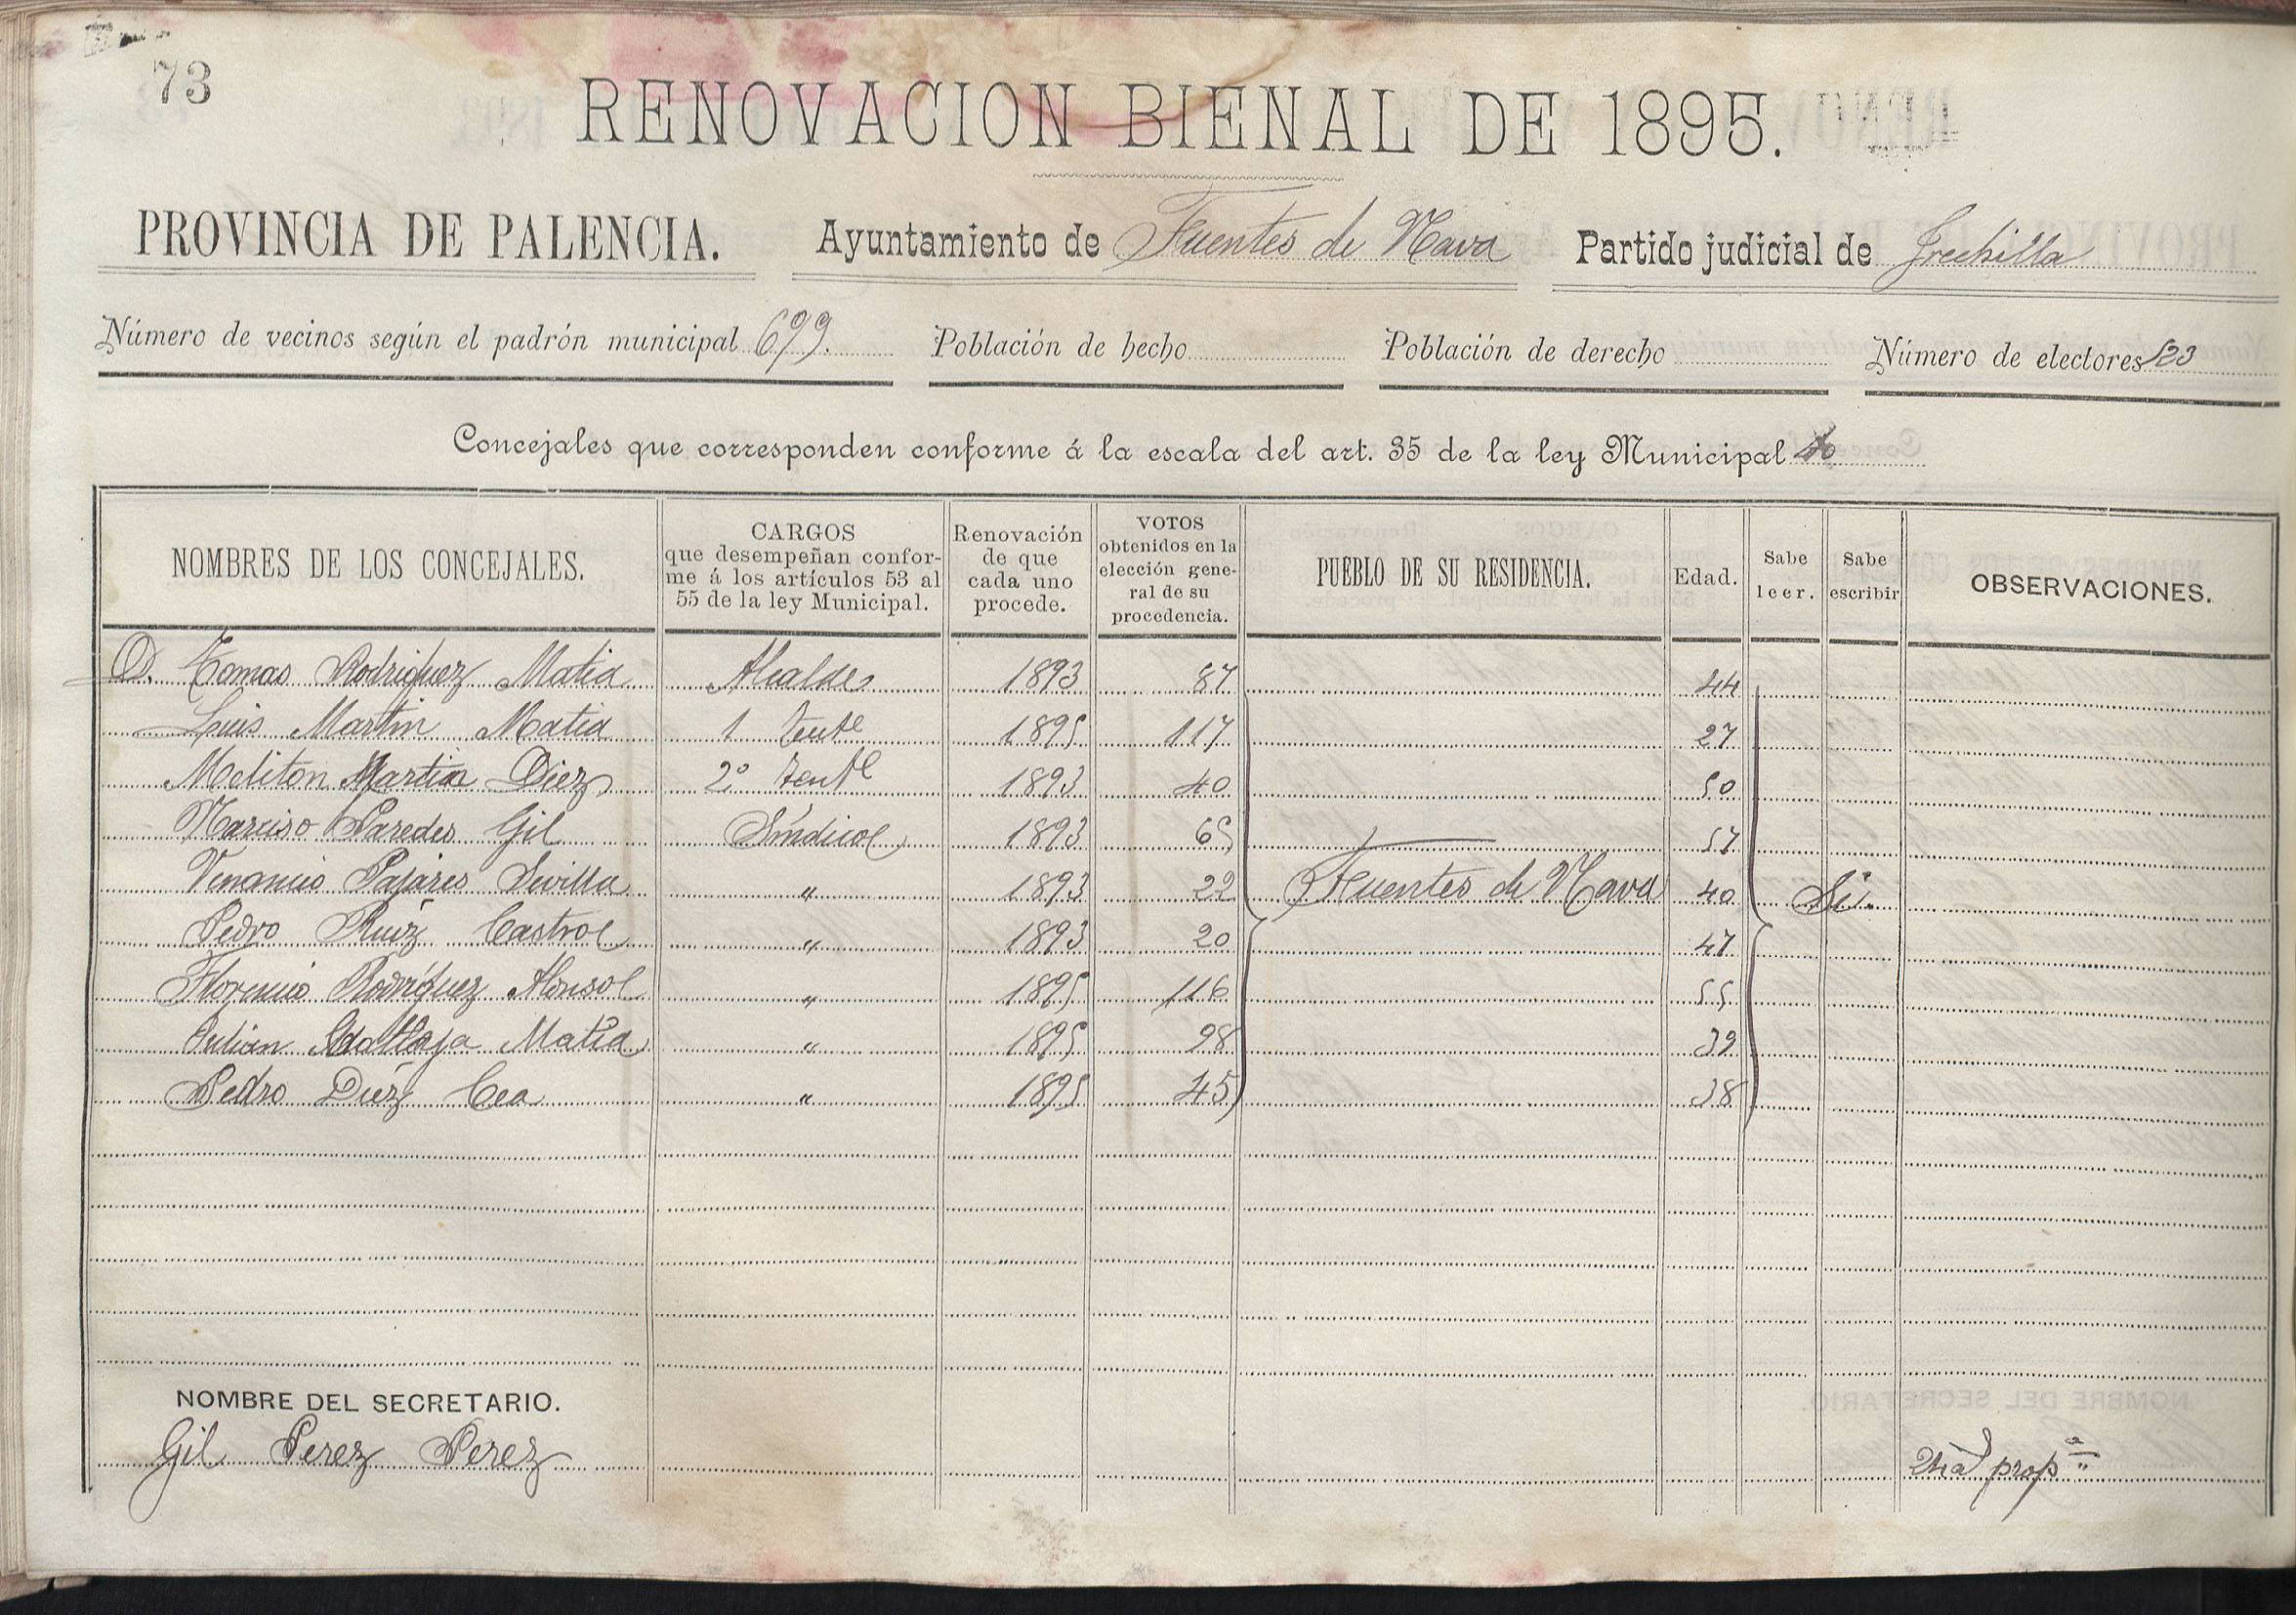 73
RENOVACION BIENAL DE 1895.
PROVINCIA DE PALENCIA. Ayuntamiento de Fuentes de Nava Partido judicial de Frechilla
Número de vecinos según el padrón municipal 699. Población de hecho Población de derecho Número de electores 523
Concejales que corresponden conforme á la escala del art. 35 de la ley Municipal 10
NOMBRES DE LOS CONCEJALES. CARGOS que desempeñan confor-me á los artículos 53 al 55 de la ley Municipal. Renovación de que cada uno procede. VOTOS obtenidos en la elección gene-ral de su procedencia. PUEBLO DE SU RESIDENCIA. Edad. Sabe leer. Sabe escribir OBSERVACIONES.
D. Tomas Rodriguez Matia Alcalde 1893 87 44
Luis Martin Matia 1 tente 1895 117 27
Meliton Martin Diez 2º tente 1893 40 50
Narciso Paredes Gil Síndico 1893 65 57
Venancio Pajares Sevilla " 1893 22 Fuentes de Nava 40 Si.
Pedro Ruiz Castro " 1893 20 47
Florencio Rodríguez Alonso " 1895 116 55
Julian Matia " 1895 98 39
Pedro Diéz Cea " 1895 45 38
NOMBRE DEL SECRETARIO.
Gil Perez Perez propª